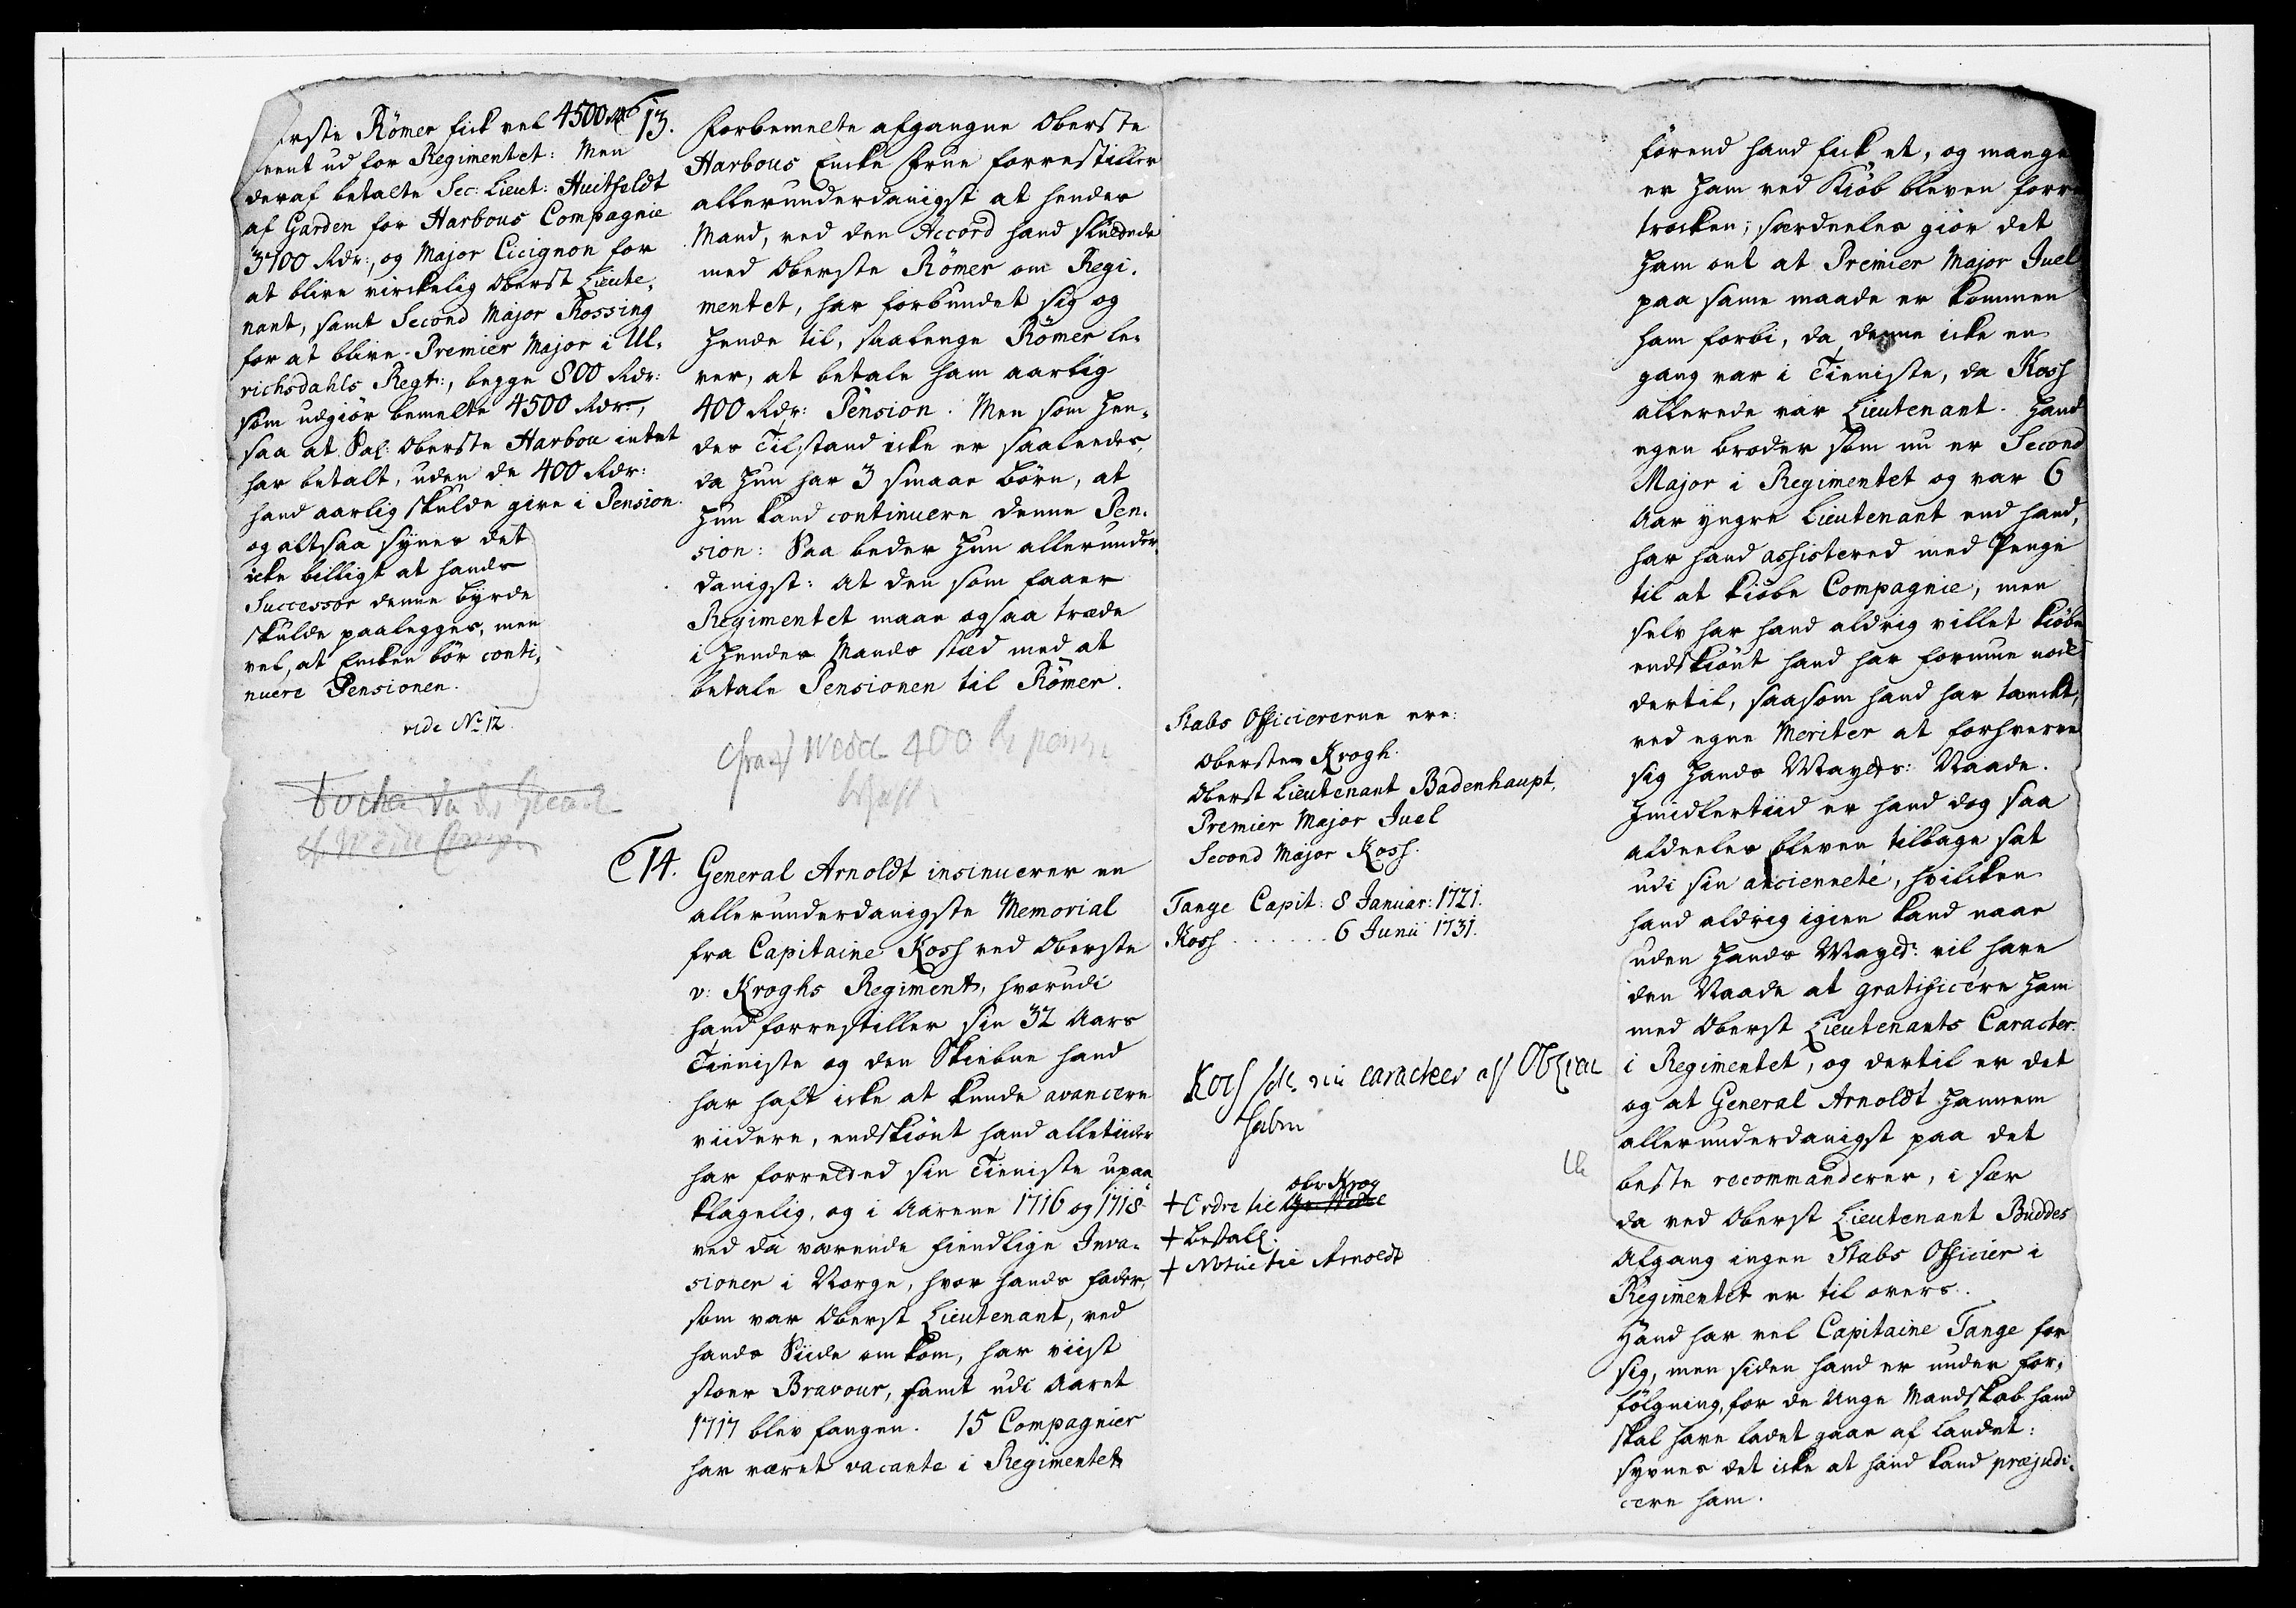 erste Römer fick vel 4500 Rdr
reent ud for Regimentet: Men
deraf betalte Sec: Lieut: Huitfeldt
af Garden for Harbous Compagnie
3700 Rdr:, og Major Cicignon for
at blive virckelig Oberst Lieute-
nant, samt Second Major Rossing
for at blive Premier Major i Ul-
richsdahls Regt:, begge 800 Rdr:
som udgiör bemelte 4500 Rdr:,
saa at Sal: Oberste Harbou intet
har betalt, uden de 400 Rdr:
hand aarlig skulde give i Pension.
og altsaa synes det
icke billigt at hands
Successor denne byrde
skulde paalegges, men
vel, at Encken bör conti-
nuere Pensionen.
vide No 12.
13.
Forbemelte afgangne Oberste
Harbous Encke Frue forrestiller
allerunderdanigst at hendes
Mand, ved den Accord hand sluttede
med Oberste Römer om Regi-
mentet, har forbundet sig og
Hende til, saalenge Römer le-
ver, at betale ham aarlig
400 Rdr: Pension. Men som Hen-
des Tilstand icke er saaleedes,
da Hun har 3 smaae börn, at
Hun kand continuere denne Pen-
sion: Saa beder Hun allerunder-
danigst: at den som faaer
Regimentet maae ogsaa træde
i Hendes Mands stæd med at
betale Pensionen til Römer.
400
14.
General Arnoldt insinuerer en
allerunderdanigste Memorial
fra Capitaine Koss ved Oberste
v: Kroghs Regiment, hvorudi
hand forrestiller sin 32 Aars
Tieniste og den Skiebne hand
har haft icke at kunde avancere
viidere, endskiönt hand alletiider
har forretted sin Tieniste upaa-
klagelig, og i Aarene 1716 og 1718
ved da værende fiendlige Inva-
sioner i Norge, hvor hands fader,
som var Oberst Lieutenant, ved
hands Siide omkom, har viist
stoer Bravour, samt udi Aaret
1717 blev fangen. 15 Compagnier
har været vacante i Regimentet
Stabs Officiererne ere:
Obersten Krogh.
Oberst Lieutenant Badenhaupt,
Premier Major Juel
Second Major Koss.
Tange Capit: 8 Januar: 1721.
Koss ....... 6 Junii 1731.
Koss caracter af
haben
obr Krog
+ Ordre til
+ Bestall.
+ Notice til Arnoldt
förend hand fick et, og mange
er Ham ved Kiöb bleven forre-
trocken; særdeeles giör det
Ham ont at Premier Major Juel
paa same maade er kommen
ham forbi, da denne icke en
gang var i Tieniste, da Koss
allerede var Lieutenant. Hands
egen broder som nu er Second
Major i Regimentet og var 6
Aar yngre Lieutenant end hand,
har hand assistered med Penge
til at kiöbe Compagnie, men
selv har hand aldrig villet kiöbe
endskiönt hand har formue nock
dertil, saasom hand har tænckt,
ved egne Meriter at forhverve
sig Hands Mayts: Naade.
Imidlertiid er hand dog saa
aldeeles bleven tilbage sat
udi sin ancienneté, hvilcken
hand aldrig igien kand naae
uden Hands Mayt: vil have
den Naade at gratificere Ham
med Oberst Lieutenants Caracter
i Regimentet, og dertil er det
og at General Arnoldt Hannem
allerunderdanigst paa det
beste recommanderer, i sær
da ved Oberst Lieutenant Buddes
Afgang ingen Stabs Officier i
Regimentet er til overs.
Hand har vel Capitaine Tange for
sig, men siden hand er under for-
fölgning, for de Unge Mandskab hand
skal have ladet gaae af Landet:
synes det icke at hand kand præjudi-
cere ham.